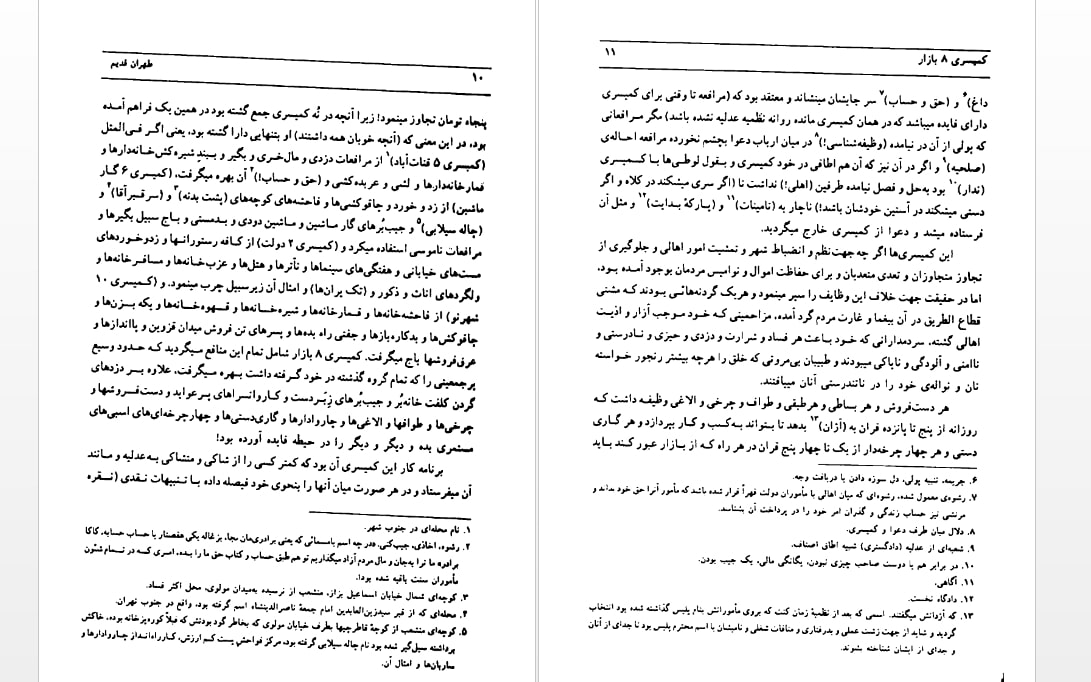 ۱۰
طهران قدیم
پنجاه تومان تجاوز مینمود! زیرا آنچه در نُه کمیسری جمع گشته بود در همین یک فراهم آمده
بود، در این معنی که (آنچه خوبان همه داشتند) او بتنهایی دارا گشته بود، یعنی اگر فی‌المثل
(کمیسری ۵ قنات‌آباد)۱ از مرافعات دزدی و مال‌خری و بگیر و ببندِ شیره‌کش‌خانه‌دارها و
قمارخانه‌دارها و لشی و عربده‌کشی و (حق و حساب!)۲ آن بهره میگرفت، (کمیسری ۶ گار
ماشین) از زد و خورد و چاقوکشی‌ها و فاحشه‌های کوچه‌های (پشت بدنه)۳ و (سرقبرآقا)۴ و
(چاله سیلابی)۵ و جیب‌بُرهای گار ماشین و ماشین دودی و بدمستی و باج سبیل بگیرها و
مرافعات ناموسی استفاده میکرد و (کمیسری ۲ دولت) از کافه رستورانها و زدوخوردهای
مست‌های خیابانی و هفتگی‌های سینماها و تآترها و هتل‌ها و عزب‌خانه‌ها و مسافرخانه‌ها و
ولگردهای اناث و ذکور و (تک پران‌ها) و امثال آن زیرسبیل چرب مینمود، و (کمیسری ۱۰
شهرنو) از فاحشه‌خانه‌ها و قمارخانه‌ها و شیره‌خانه‌ها و قهوه‌خانه‌ها و یکه بزن‌ها و
چاقوکش‌ها و بدکاره‌بازها و جفتی راه بده‌ها و پسرهای تن فروش میدان قزوین و پااندازها و
عرق‌فروشها باج میگرفت. کمیسری ۸ بازار شامل تمام این منافع میگردید که حدود وسیع
پرجمعیتی را که تمام گروه گذشته در خود گرفته داشت بهره میگرفت، علاوه بر دزدهای
گردن کلفت خانه‌بُر و جیب‌بُرهای زِبَردست و کاروانسراهای پرعواید و دست‌فروشها و
چرخی‌ها و طوافها و الاغی‌ها و چاروادارها و گاری‌دستی‌ها و چهارچرخه‌ای‌های اسبی‌های
مستمری بده و دیگر و دیگر را در حیطه فایده آورده بود!
برنامه کار این کمیسری آن بود که کمتر کسی را از شاکی و متشاکی به‌عدلیه و مانند
آن میفرستاد و در هر صورت میان آنها را بنحوی خود فیصله داده با تنبیهات نقدی (نـقره
۱. نام محله‌ای در جنوب شهر.
۲. رشوه، اخاذی، جیب‌کنی، در هر چه اسم بامسمائی که یعنی برادری‌مان بجا، بزغاله یکی هفصنار یا حساب حسابه، کاکا
برادر، ما ترا به‌جان و مال مردم آزاد میگذاریم تو هم طبق حساب و کتاب حق ما را بده، امـری کـه در تـمام شئون
مأموران سنت باقیه شده بود!.
۳. کوچه‌ای شمال خیابان اسماعیل بزاز، منشعب از نرسیده به‌میدان مولوی، محل اکثر فساد.
۴. محله‌ای که از قبر سیدزین‌العابدین امام جمعهٔ ناصرالدینشاه اسم گرفته بود، واقع در جنوب تهران.
۵. کوچه‌ای منشعب از کوچهٔ قاطرچیها بطرف خیابان مولوی که بخاطر گود بودنش که قبلاً کوره‌پزخانه بوده، خاکش
برداشته سیل‌گیر شده بود نام چاله سیلابی گرفته بود، مرکز فواحش پست کـم ارزش، کـارراه‌انـداز چـاروادارها و
ساربان‌ها و امثال آن.
کمیسری ۸ بازار
۱۱
داغ)۶ و (حق و حساب)۷ سر جایشان مینشاند و معتقد بود که (مرافعه تا وقتی برای کمیسری
دارای فایده میباشد که در همان کمیسری مانده روانه نظمیه عدلیه نشده باشد) مگر مرافعاتی
که پولی از آن در نیامده (وظیفه‌شناسی!)۸ در میان ارباب دعوا بچشم نخورده مرافعه احاله‌ی
(صلحیه)۹ و اگر در آن نیز که آن هم اطاقی در خود کمیسری و بقول لوطی‌ها با کـمیسری
(ندار)۱۰ بود به‌حل و فصل نیامده طرفین (اهلی!) نداشت تا (اگر سری میشکند در کلاه و اگر
دستی میشکند در آستین خودشان باشد!) ناچار به (تأمینات)۱۱ و (پارکهٔ بدایت)۱۲ و مثل آن
فرستاده میشد و دعوا از کمیسری خارج میگردید.
این کمیسری‌ها اگر چه جهت‌نظم و انضباط شهر و تمشیت امور اهالی و جلوگیری از
تجاوز متجاوزان و تعدی متعدیان و برای حفاظت اموال و نوامیس مردمان بوجود آمـده بود،
اما در حقیقت جهت خلاف این وظایف را سیر مینمود و هریک گردنه‌هائی بودند کـه مشتی
قطاع الطریق در آن بیغما و غارت مردم گرد آمده، مزاحمینی که خـود مـوجب آزار و اذیت
اهالی گشته، سردمدارانی که خـود بـاعث هر فساد و شرارت و دزدی و حیزی و نـادرستی و
ناامنی و آلودگی و ناپاکی میبودند و طبیبان بی‌مروتی که خلق را هرچه بیشتر رنجور خـواسته
نان و نواله‌ی خود را در ناتندرستی آنان مییافتند.
هر دست‌فروش و هر بساطی و هرطبقی و طواف و چرخی و الاغی وظیفه داشت که
روزانه از پنج تا پانزده قران به (آژان)۱۳ بدهد تا بتواند به‌کسب و کـار بپردازد و هر گـاری
دستی و هر چهار چرخه‌دار از یک تا چهار پنج قران در هر راه کـه از بـازار عبور کـند بـاید
۶. جریمه، تنبیه پولی، دل سوزه دادن با دریافت وجه.
۷. رشوه‌ی معمول شده، رشوه‌ای که میان اهالی با مأموران دولت قهراً قرار شده باشد که مأمور آنرا حق خود بداند و
مرتشی نیز حساب زندگی و گذران امر خود را در پرداخت آن بشناسد.
۸. دلال میان طرف دعوا و کمیسری.
۹. شعبه‌ای از عدلیه (دادگستری) شبیه اطاق اصناف.
۱۰. در برابر هم یا دوست صاحب چیزی نبودن، یگانگی مالی، یک جیب بودن.
۱۱. آگاهی.
۱۲. دادگاه نخست.
۱۳. که آژدانش میگفتند. اسمی که بعد از نظمیهٔ زمان کنت که بروی مأمورانش بنام پلیس گذاشته شده بود انتخاب
گردید و شاید از جهت زشت عملی و بدرفتاری و منافات شغلی و نامیشان با اسم محترم پلیس بود تا جدای از آنان
و جدای از ایشان شناخته بشوند.